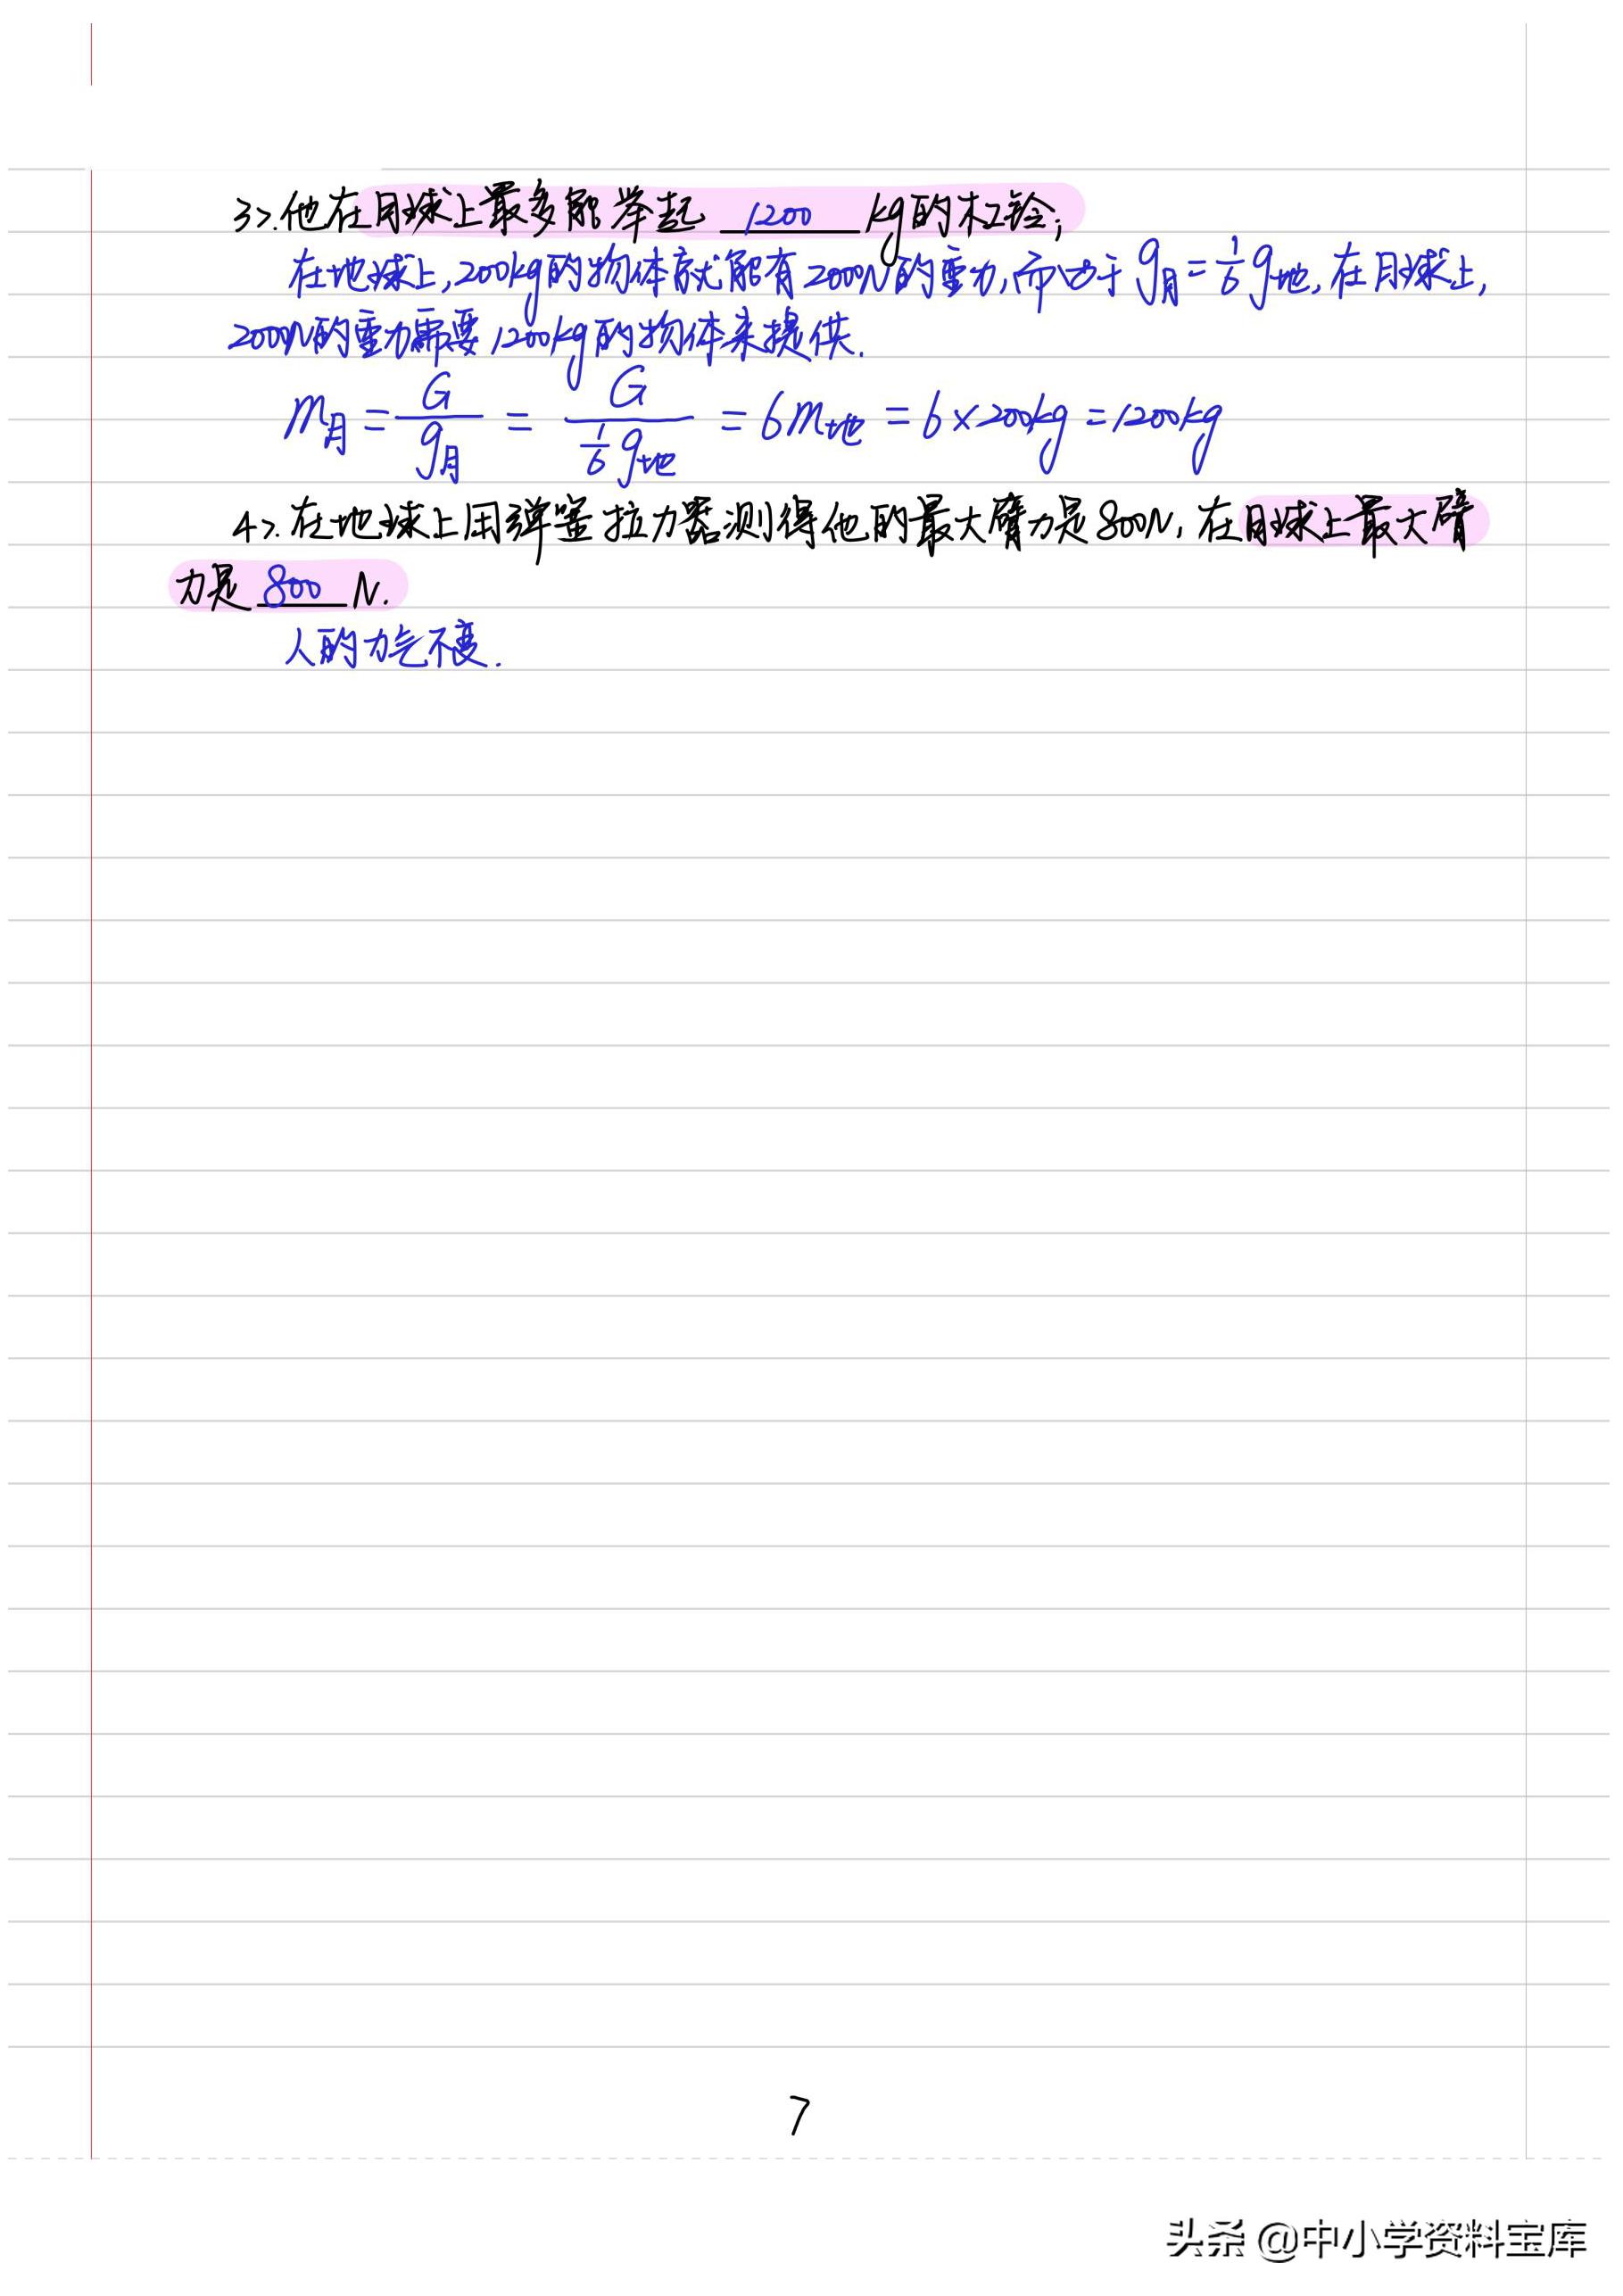 3>.他在月球上最多能举起 1200 kg的杠铃;
在地球上,200kg的物体就能有2000N的重力,而由于 g月=1/6 g地,在月球上,
2000N的重力需要1200kg的物体来提供.
m月 = G/g月 = G/(1/6 g地) = 6m地 = 6×200kg = 1200kg
4>.在地球上用弹簧拉力器测得他的最大臂力是800N,在月球上最大臂
力是 800 N.
人的力气不变.
7
头条 @中小学资料宝库